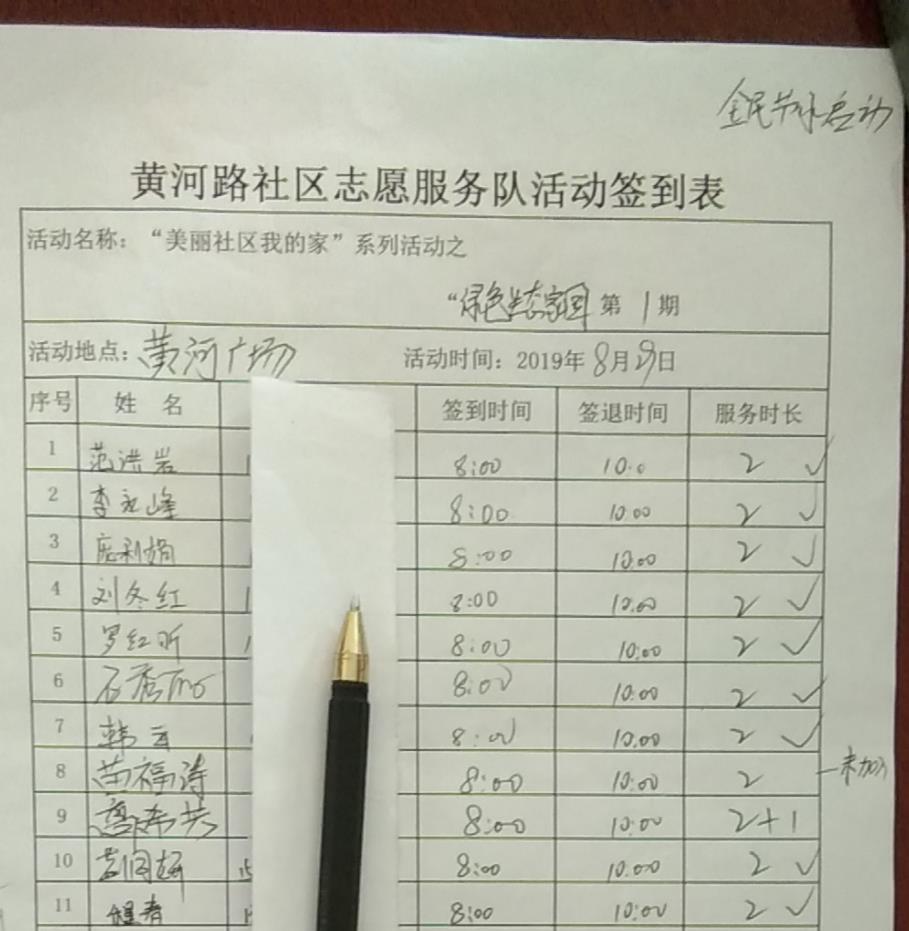 全民节水启动
黄河路社区志愿服务队活动签到表
活动名称：“美丽社区我的家”系列活动之
“绿色生态家园 第 1 期
活动地点：黄河广场 活动时间：2019年8月19日
序号 姓 名 签到时间 签退时间 服务时长
1 范洪岩 8:00 10:0 2 ✓
2 李永峰 8:00 10:00 2 ✓
3 庞利娟 8:00 10:00 2 ✓
4 刘冬红 8:00 10:00 2 ✓
5 罗红昕 8:00 10:00 2 ✓
6 石秀丽 8:00 10:00 2 ✓
7 韩云 8:00 10:00 2 ✓
8 苗福涛 8:00 10:00 2 —未加
9 8:00 10:00 2+1
10 8:00 10:00 2 ✓
11 8:00 10:00 2 ✓